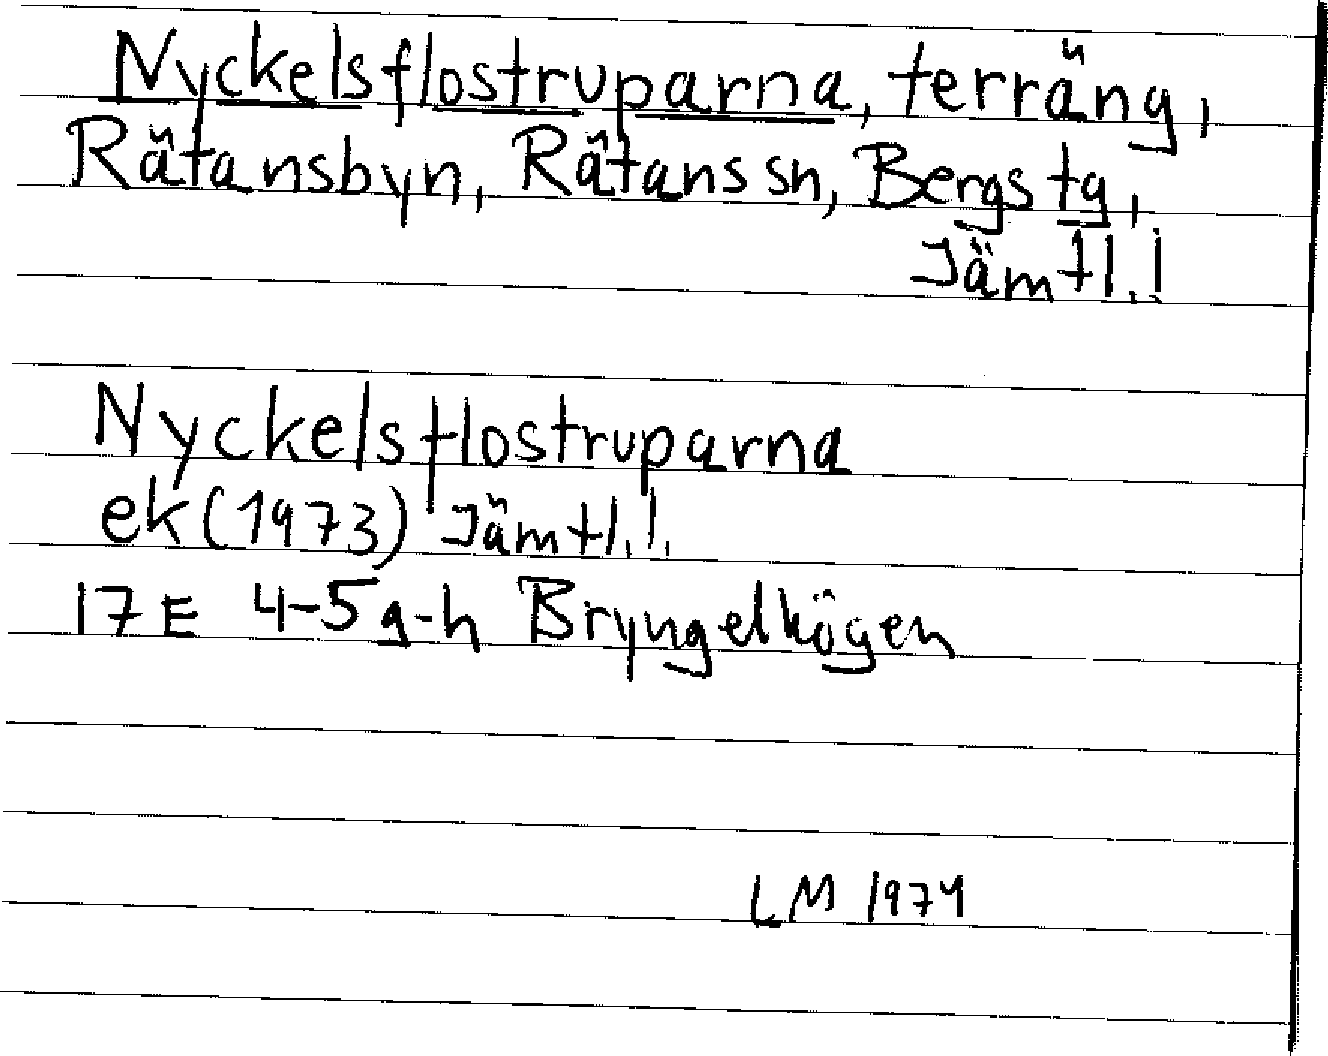 Nyckelsflostruparna, terräng,
Rätansbyn, Rätans sn, Bergs tg,
Jämtl.l.
Nyckelsflostruparna
ek (1973) Jämtl.l.
17E 4-5g-h Bryngelhögen
LM 1974